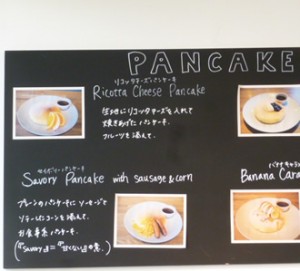 PANCAKE
リコッタチーズパンケーキ
Ricotta Cheese Pancake
生地にリコッタチーズを入れて
焼きあげたパンケーキ。
フルーツを添えて。
セイボリーパンケーキ
Savory Pancake with sausage & corn
プレーンのパンケーキにソーセージと
ソテーしたコーンを添えて。
お食事系パンケーキ。
(『Savory』=『甘くない』の意。)
バナナキャラメ
Banana Cara